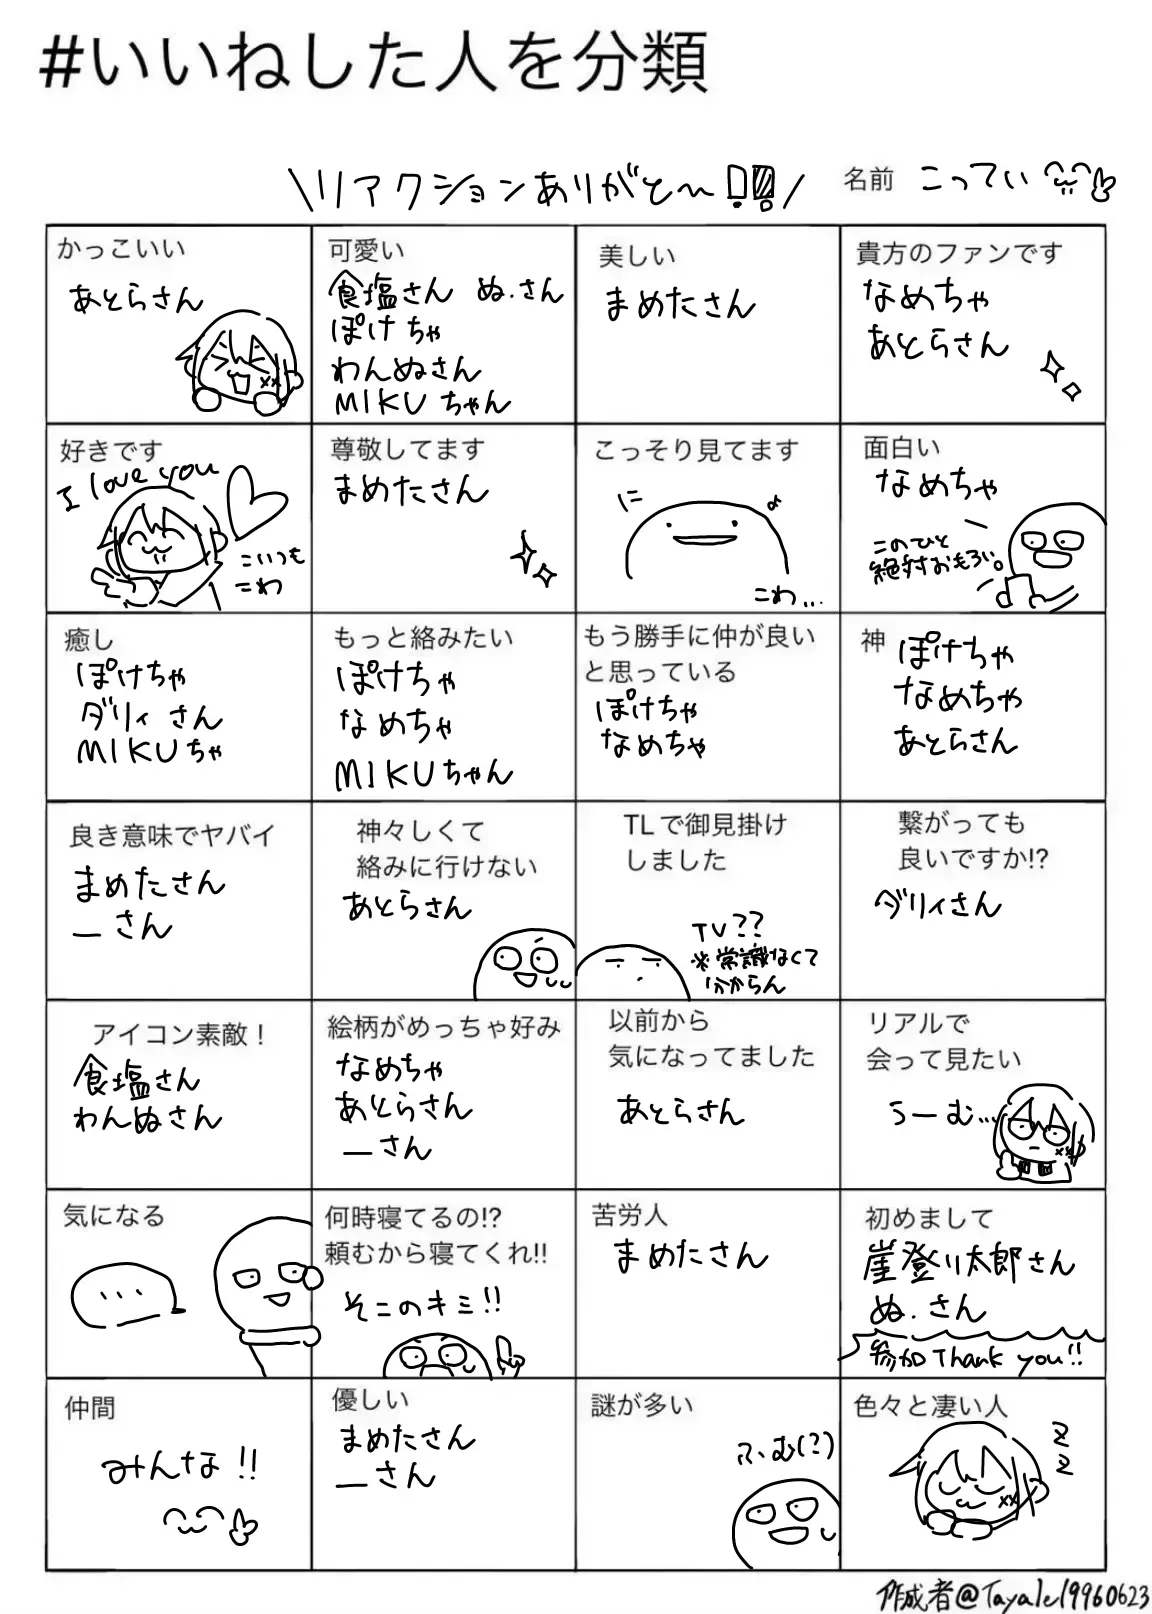 #いいねした人を分類
\リアクションありがと〜!!/
名前 こってぃ
かっこいい
あとらさん
可愛い
食塩さん ぬ.さん
ぽけちゃ
わんぬさん
MIKUちゃん
美しい
まめたさん
貴方のファンです
なめちゃ
あとらさん
好きです
I love you
こいつも
こわ
尊敬してます
まめたさん
こっそり見てます
に
よ
こわ...
面白い
なめちゃ
このひと
絶対おもろい。
癒し
ぽけちゃ
ダリィさん
MIKUちゃ
もっと絡みたい
ぽけちゃ
なめちゃ
MIKUちゃん
もう勝手に仲が良い
と思っている
ぽけちゃ
なめちゃ
神
ぽけちゃ
なめちゃ
あとらさん
良き意味でヤバイ
まめたさん
_さん
神々しくて
絡みに行けない
あとらさん
TLで御見掛け
しました
TV??
※常識なくて
分からん
繋がっても
良いですか!?
ダリィさん
アイコン素敵!
食塩さん
わんぬさん
絵柄がめっちゃ好み
なめちゃ
あとらさん
_さん
以前から
気になってました
あとらさん
リアルで
会って見たい
うーむ...
気になる
...
何時寝てるの!?
頼むから寝てくれ!!
そこのキミ!!
苦労人
まめたさん
初めまして
崖登り太郎さん
ぬ.さん
参加 Thank you!!
仲間
みんな!!
優しい
まめたさん
_さん
謎が多い
ふむ(?)
色々と凄い人
z
z
作成者@Tayale19960623